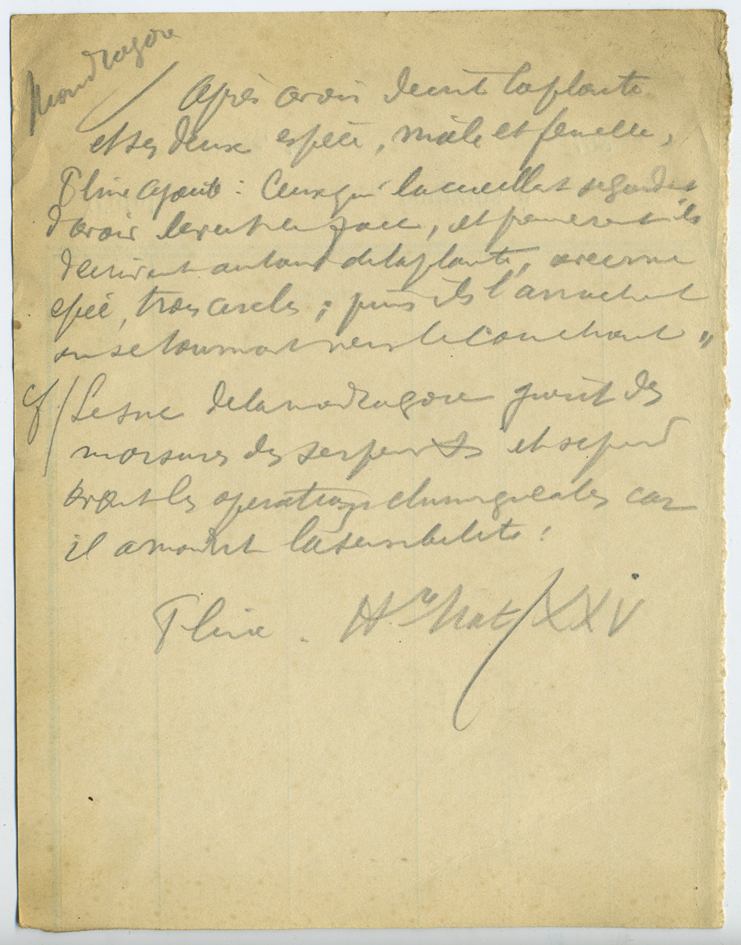 Mandragore
Après avoir décrit la plante
et ses deux espèces, mâle et femelle,
Pline ajoute : Ceux qui la cueillent se gardent
d'avoir le vent en face, et premièrement ils
décrivent autour de la plante, avec une
épée, trois cercles ; puis ils l'arrachent
en se tournant vers le couchant "
Le suc de la mandragore guérit des
morsures des serpents et se prend
avant les opérations chirurgicales car
il amortit la sensibilité :
Pline . Hre Nat / XXV